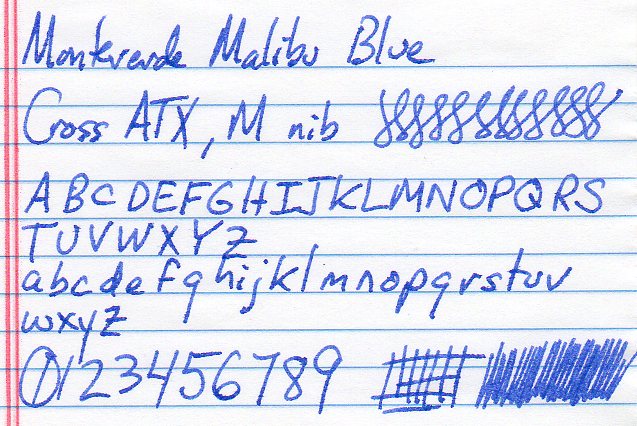 Monteverde Malibu Blue
Cross ATX, M nib
ABCDEFGHIJKLMNOPQRS
TUVWXYZ
abcdefghijklmnopqrstuv
wxyz
0123456789